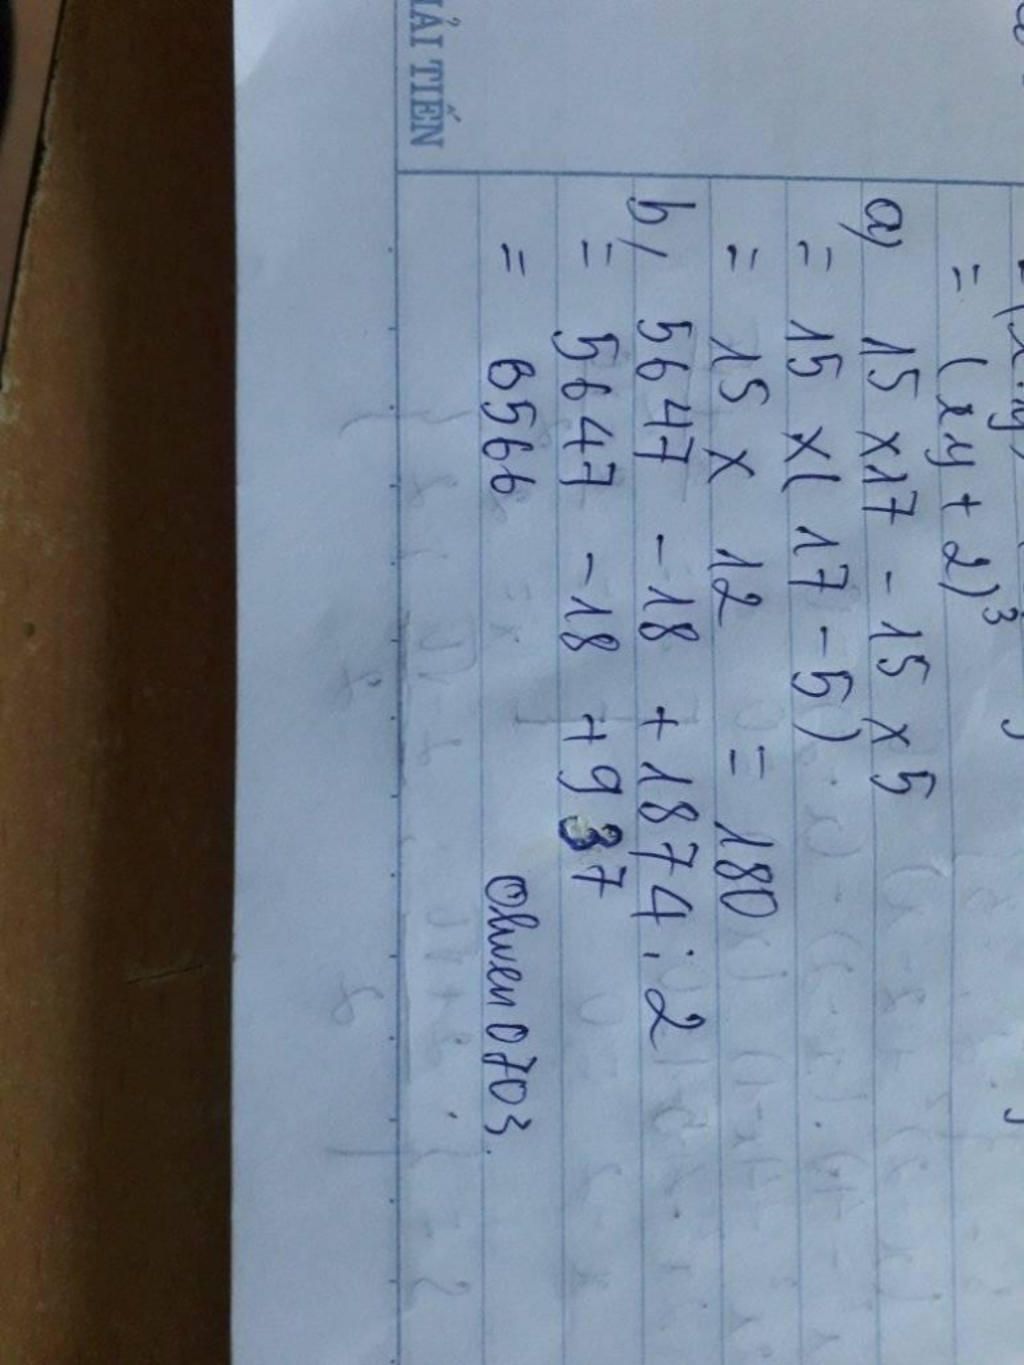 ẢI TIẾN
= (xy + 2)³
a) 15 x 17 - 15 x 5
= 15 x ( 17 - 5 )
= 15 x 12 = 180
b, 5647 - 18 + 1874 : 2
= 5647 - 18 + 937
= 6566 Oliven0703.